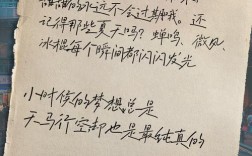 甜甜的永远不会过期哦。还
记得那些夏天吗？蝉鸣、微风、
冰棍每个瞬间都闪闪发光
小时候的梦想总是
天马行空却也是最纯真的